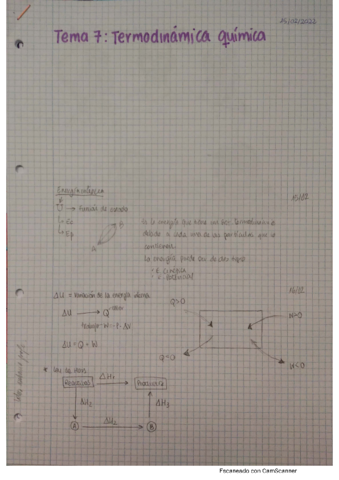 15/02/2022
Tema 7: Termodinámica química
Energía interna
15/02
U
→ Función de estado
Es la energía que tiene un sist. termodinámico
→ Ec
debido a cada una de las partículas que lo
→ Ep
A
B
constituyen.
La energía puede ser de dos tipos
· E. cinética
· E. potencial
ΔU = Variación de la energía interna
Q>0
W>0
ΔU → Q calor
Trabajo
ΔU = Q + W
Q<0
W<0
* Ley de Hess
Reactivos
ΔH1
Productos
ΔH2
ΔH3
A
B
Escaneado con CamScanner